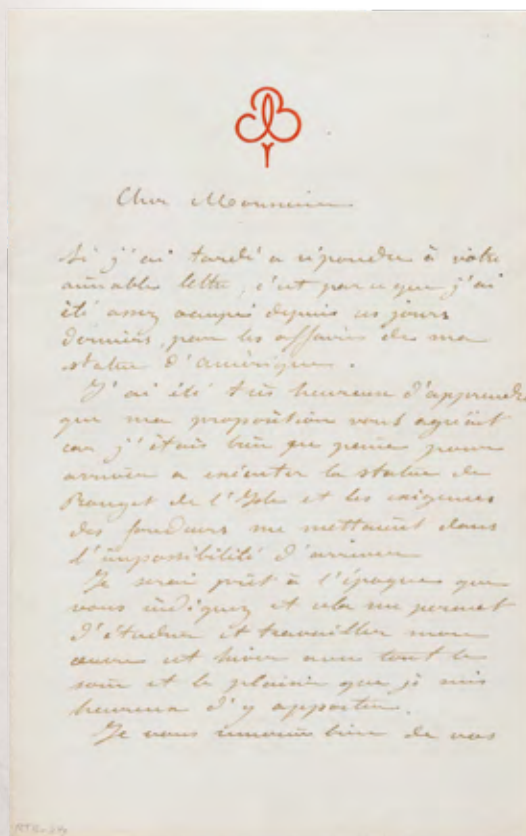 Cher Monsieur
Si j'ai tardé a répondre à votre
aimable lettre, c'est parceque j'ai
été assez occupé depuis ces jours
derniers, par les affaires de ma
statue d'amérique.
J'ai été très heureux d'apprendre
que ma proposition vous agréait
car j'étais bien en peine pour
arriver a exécuter la statue de
Rouget de l'Isle et les exigences
des fondeurs me mettaient dans
l'impossibilité d'arriver
Je serai prêt à l'époque que
vous indiquez et cela me permet
d'étudier et travailler mon
œuvre cet hiver avec tout le
soin et le plaisir que je suis
heureux d'y apporter.
Je vous remercie bien de vos